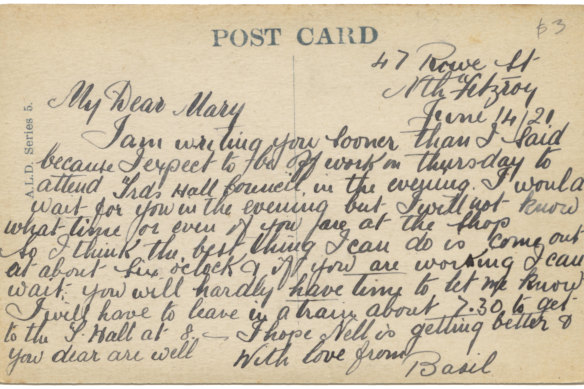 63
POST CARD
A.L.D. Series 5.
47 Rowe St
Nth Fitzroy
June 14/21
My Dear Mary
I am writing you sooner than I said
because I expect to be off work on thursday to
attend Trds Hall Council, in the evening. I would
wait for you in the evening but I will not know
what time or even if you are at the shop
so I think the best thing I can do is come out
at about six o'clock & if you are working I can
wait you will hardly have time to let me know
I will have to leave in a tram about 7.30 to get
to the T. Hall at 8. — I hope Nell is getting better &
you dear are well With love from
Basil